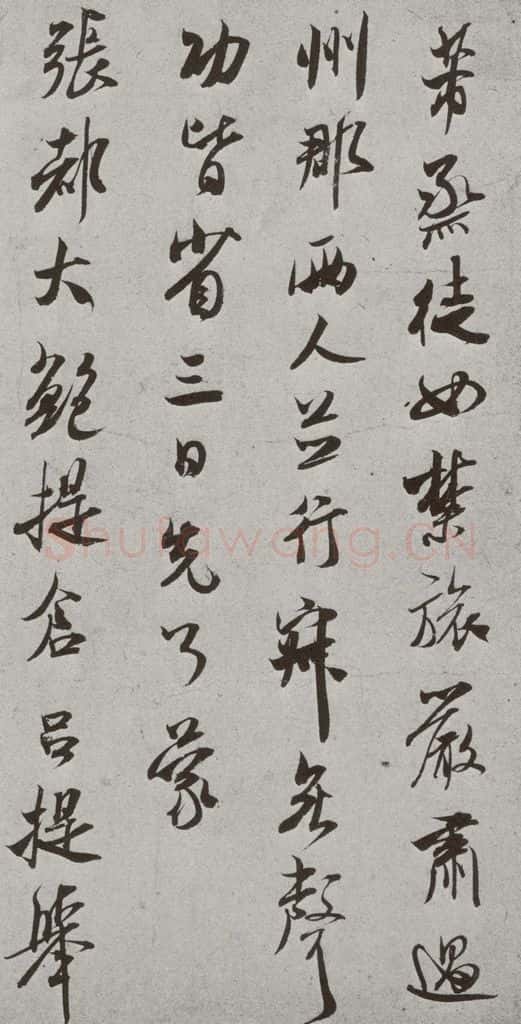 芾烝徒如禁旅嚴肅過
州郡兩人並行寂無聲
功皆省三日先了蒙
張都大鮑提倉呂提舉
Shufawang.CN